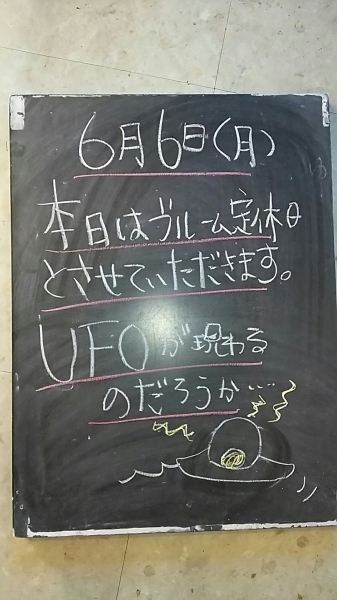 6月6日(月)
本日はブルーム定休日
とさせていただきます。
UFOが現わる
のだろうか....